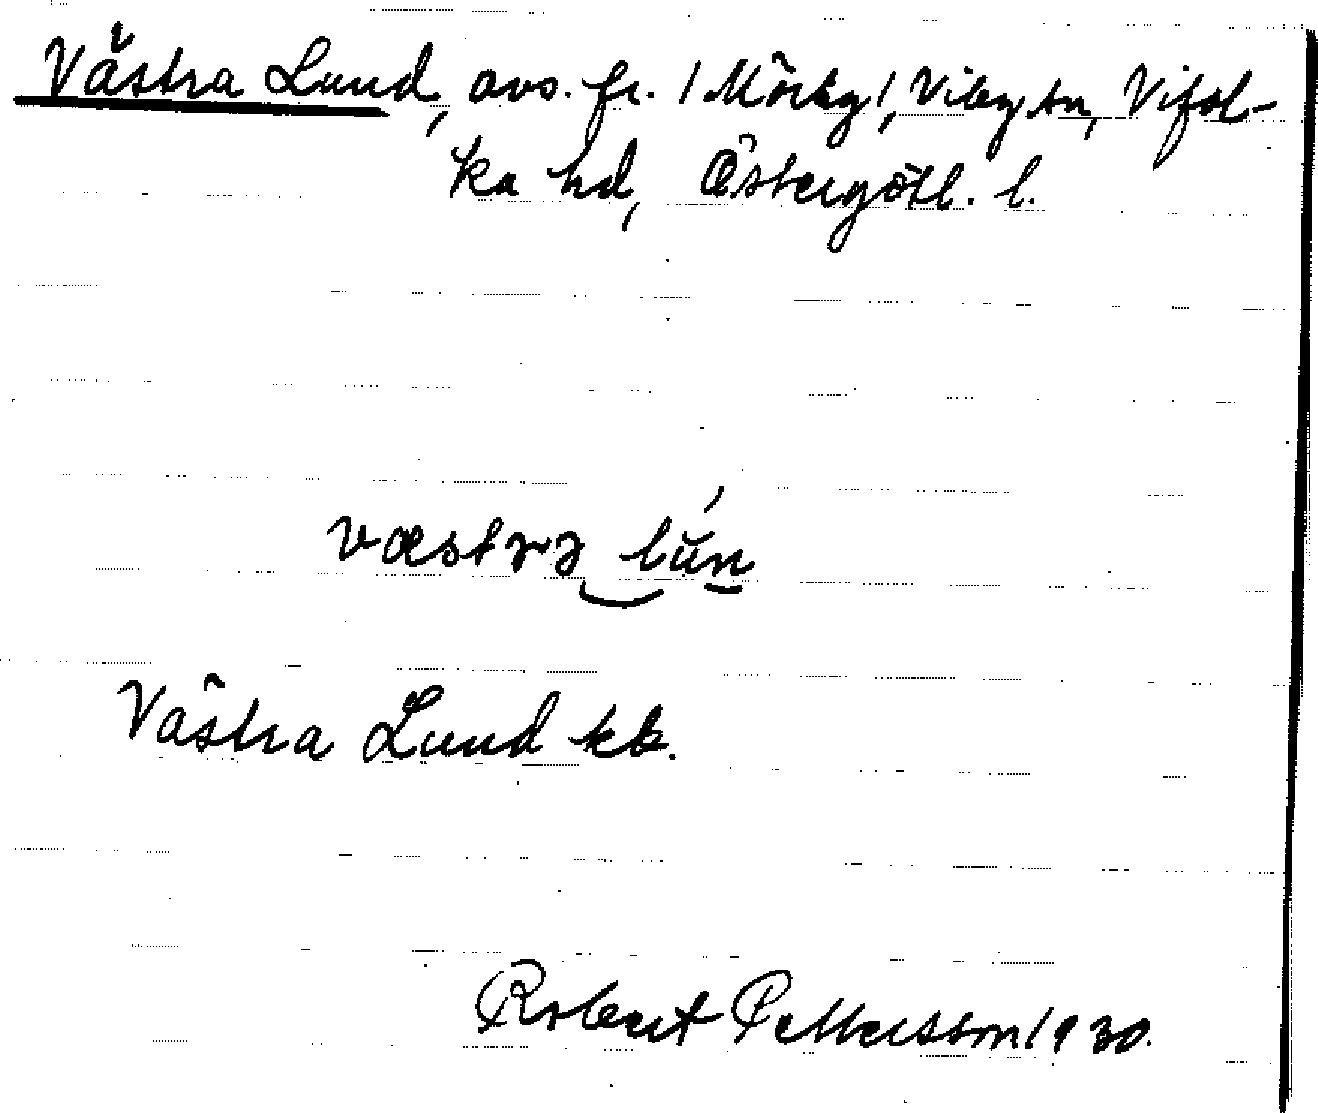 Västra Lund, avs. fr. / Mörby /, Viby sn, Vifol-
ka hd, Östergötl. l.
væstrə lu̇́n
Västra Lund kb.
Robert Pettersson 1930.